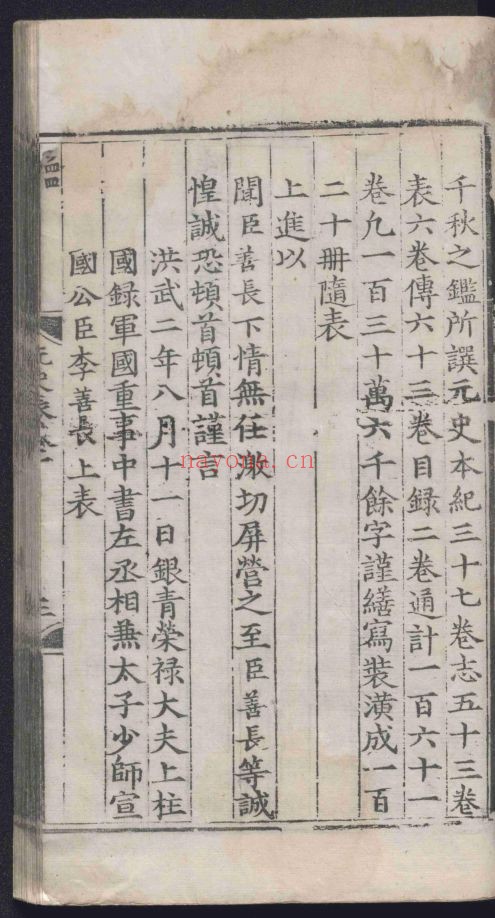 千秋之鑑所譔元史本紀三十七卷志五十三卷
表六卷傳六十三卷目録二卷通計一百六十一
卷凡一百三十萬六千餘字謹繕寫裝潢成一百
二十册隨表
上進以
聞臣善長下情無任激切屏營之至臣善長等誠
惶誠恐頓首頓首謹言
洪武二年八月十一日銀青榮禄大夫上柱
國録軍國重事中書左丞相兼太子少師宣
國公臣李善長上表
nayona.cn